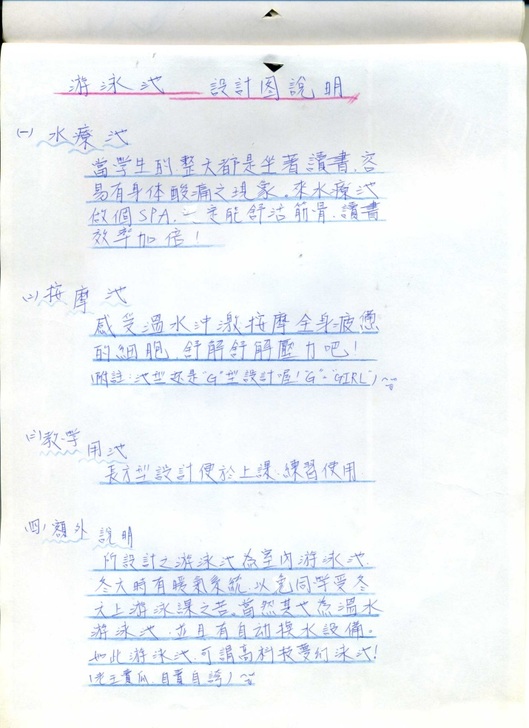 游泳池 設計图說明
(一) 水療池
當學生的整天都是坐著讀書.容
易有身体酸痛之現象。來水療池
做個SPA.一定能舒活筋骨.讀書
效率加倍!
(二)按摩池
感受溫水沖激按摩全身疲憊
的細胞.舒解舒解壓力吧!
(附註:池型还是"G"型設計喔!"G"="GIRL")
(三)教學用池
長方型設計便於上課.練習使用
(四)額外說明
所設計之游泳池為室內游泳池
冬天時有暖氣系統.以免同學受冬
天上游泳課之苦。當然其也為溫水
游泳池.並具有自动換水設備。
如此游泳池.可謂高科技夢幻泳池!
(老王賣瓜.自賣自誇)